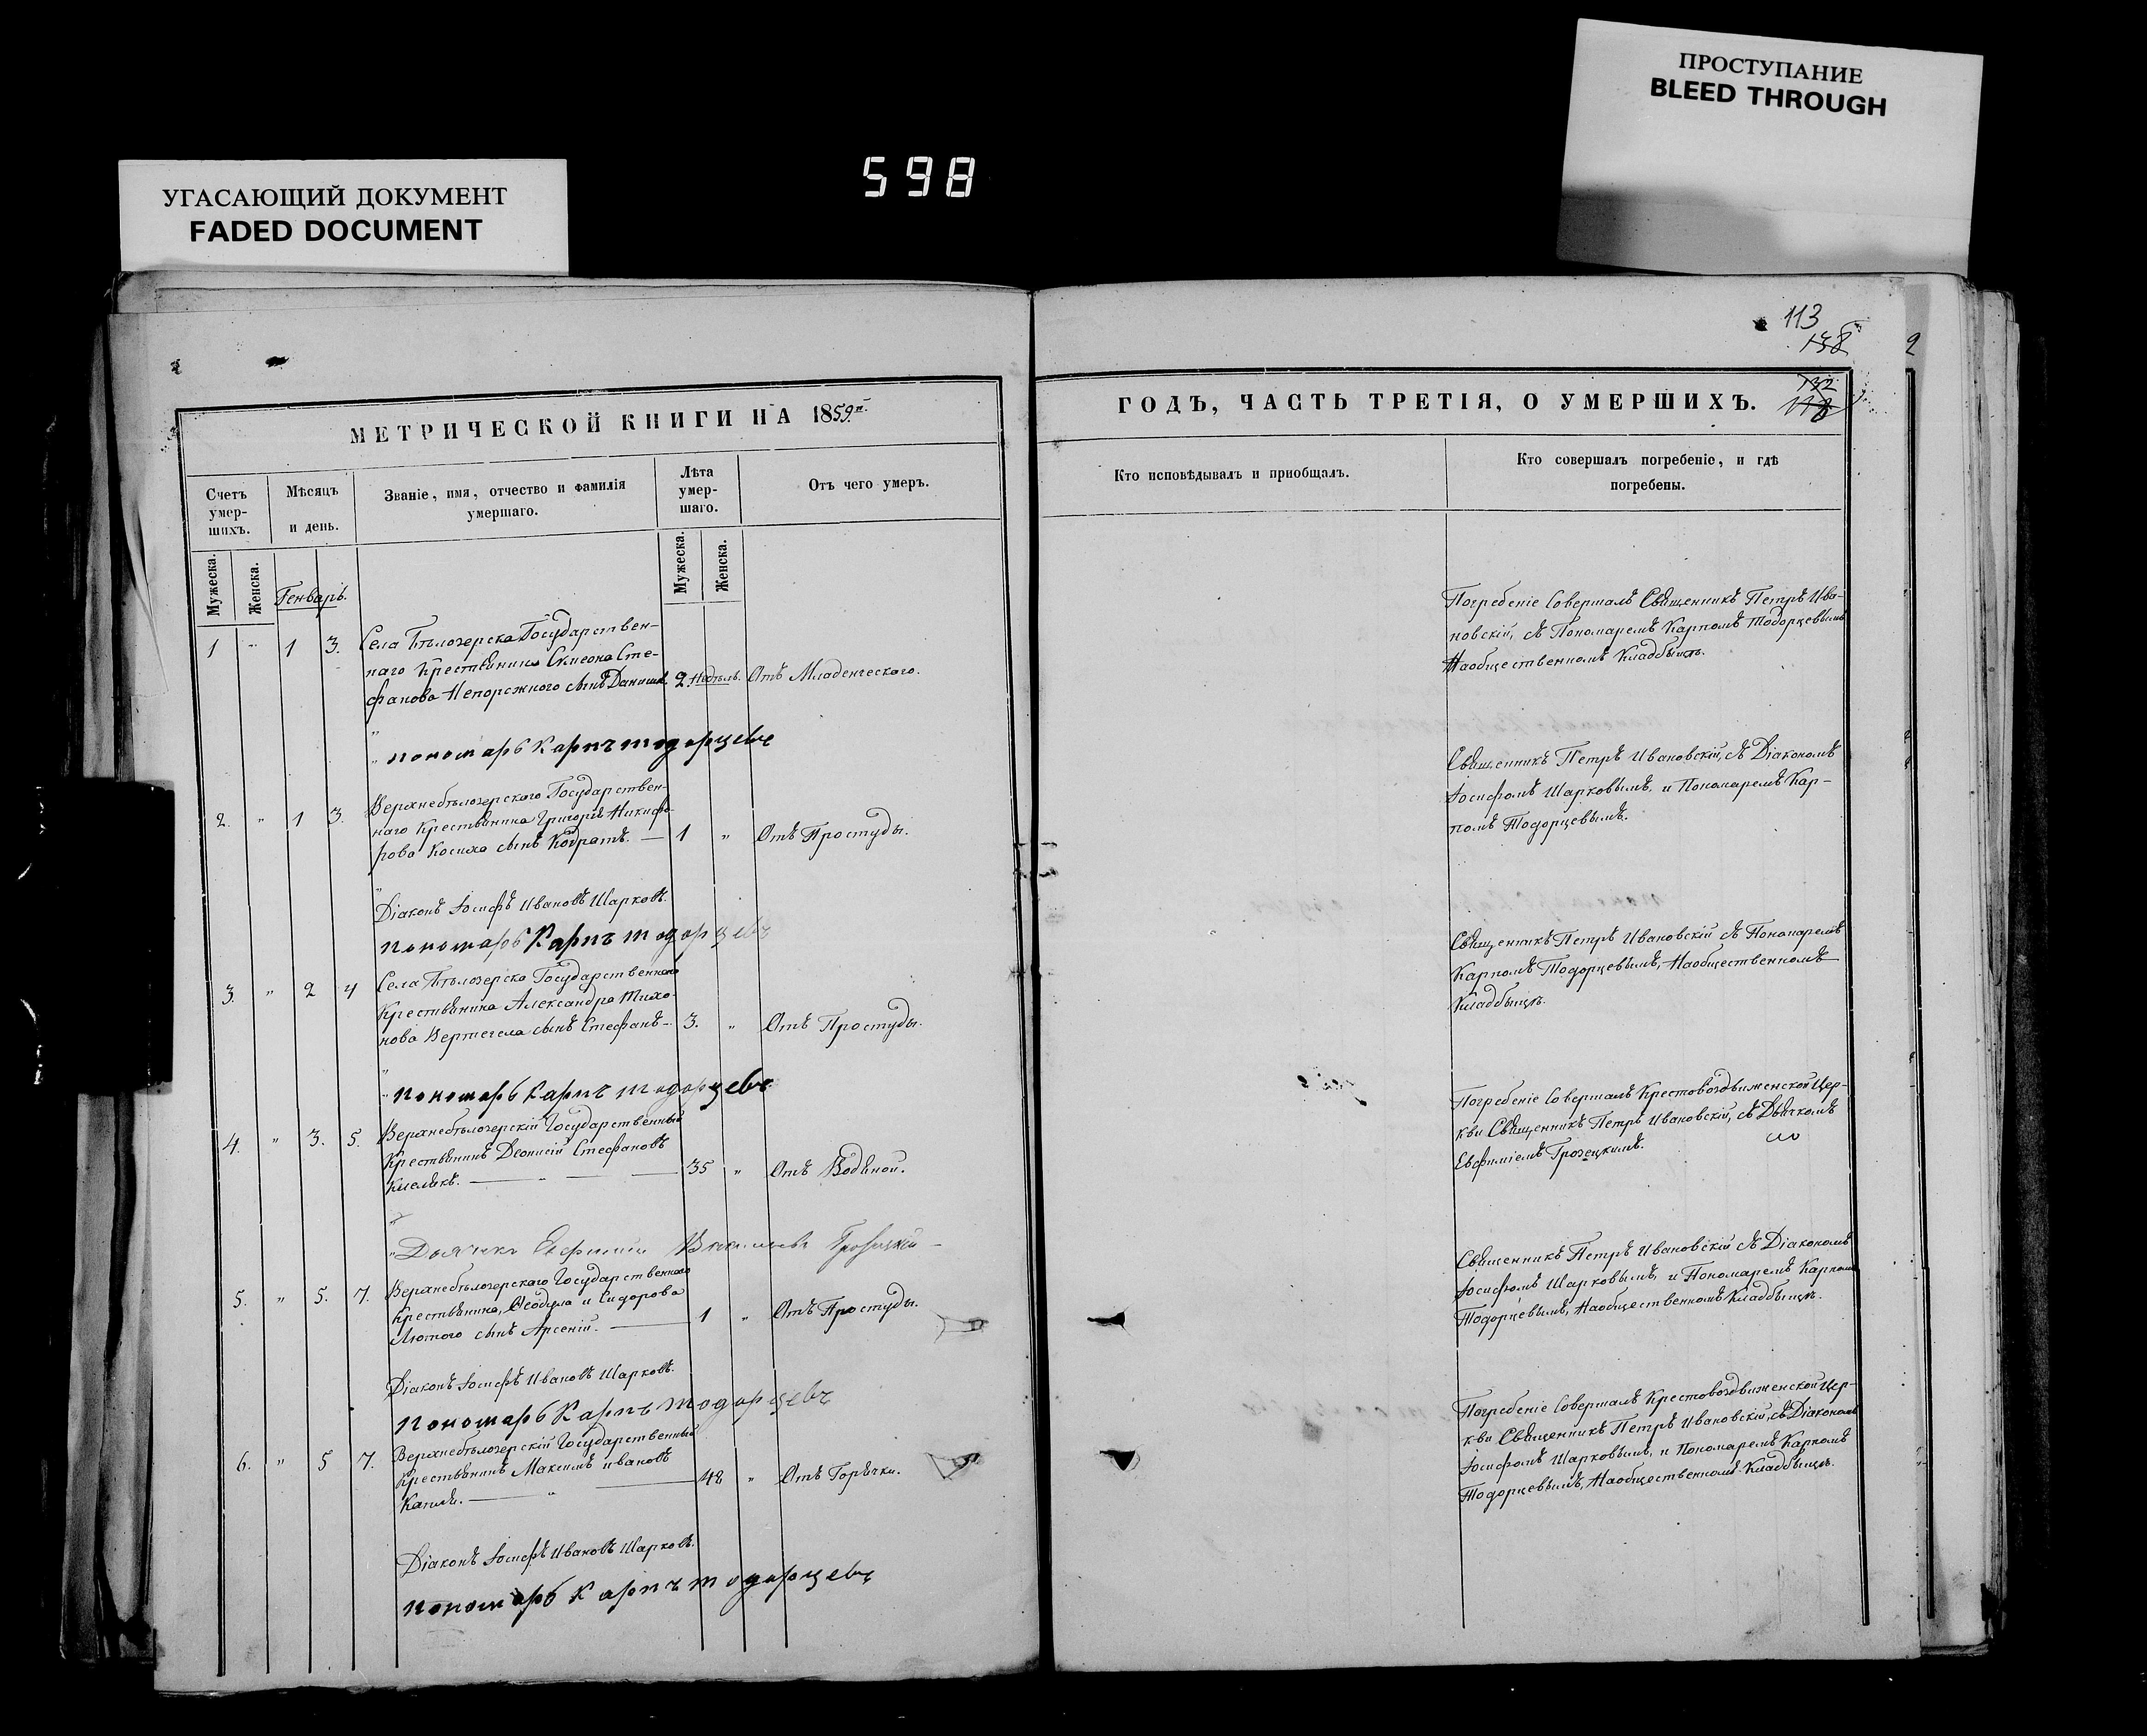 ПРОСТУПАНИЕ
BLEED THROUGH
598
УГАСАЮЩИЙ ДОКУМЕНТ
FADED DOCUMENT
113
138
2
МЕТРИЧЕСКОЙ КНИГИ НА 1859й
Счетъ умер-шихъ.
Мѣсяцъ и день.
Званіе, имя, отчество и фамилія умершаго.
Лѣта умер-шаго.
Отъ чего умеръ.
Мужеска.
Женска.
Мужеска.
Женска.
Генварь.
1 " 1 3. Села Бѣлозерска Государствен-
наго Крестьянина Симеона Сте-
фанова Непорожного сынъ 2. Недѣль. Отъ Младенческаго.
" пономарь Карпъ тодорцевъ
2. " 1 3. Верхнебѣлозерского Государствен-
наго Крестьянина Григорія Никифо-
рова Косиха сынъ Кодратъ. — 1 " Отъ Простуды.
Діаконъ Іосифъ Ивановъ Шарковъ.
пономарь Карпъ тодорцевъ
3. " 2 4 Села Бѣлозерска Государственнаго
Крестьянина Александра Тихо-
нова Вертегела сынъ Стефанъ - 3. " Отъ Простуды.
" пономарь Карпъ тодорцевъ
4. " 3. 5. Верхнебѣлозерскій Государственный
Крестьянинъ Діонисій Стефановъ
35 " Отъ Водяной.
" Дьячекъ Евфимий Грозецкій
5. " 5. 7. Верхнебѣлозерскаго Государственнаго
Крестьянина, Ѳеодула Сидорова
Лютого сынъ Арсеній. — 1 " Отъ Простуды.
Діаконъ Іосифъ Ивановъ Шарковъ.
пономарь Карпъ тодорцевъ
6. " 5 7. Верхнебѣлозерскій Государственный
Крестьянинъ Максимъ Ивановъ
48 " Отъ Горячки.
Діаконъ Іосифъ Ивановъ Шарковъ.
пономарь Карпъ тодорцевъ
ГОДЪ, ЧАСТЬ ТРЕТІЯ, О УМЕРШИХЪ.
132
118
Кто исповѣдывалъ и приобщалъ.
Кто совершалъ погребеніе, и гдѣ
погребены.
Погребеніе Совершалъ Священникъ Петръ Ива-
новскій, съ Пономаремъ Карпомъ Тодорцевымъ
На общественномъ Кладбищѣ.
Священникъ Петръ Ивановскій, съ Діакономъ
Іосифомъ Шарковымъ, и Пономаремъ Кар-
помъ Тодорцевымъ.
Священникъ Петръ Ивановскій съ Пономаремъ
Карпомъ Тодорцевымъ, На общественномъ
Кладбищѣ.
Погребеніе Совершалъ Крестовоздвиженской Цер-
кви Священникъ Петръ Ивановскій, съ Дьячкомъ
Евфиміемъ Грозецкимъ.
Священникъ Петръ Ивановскій съ Діакономъ
Іосифомъ Шарковымъ, и Пономаремъ Карпомъ
Тодорцевымъ, На общественномъ Кладбищѣ.
Погребеніе Совершалъ Крестовоздвиженской Цер-
кви Священникъ Петръ Ивановскій, съ Діакономъ
Іосифомъ Шарковымъ, и Пономаремъ Карпомъ
Тодорцевымъ, На общественномъ Кладбищѣ.